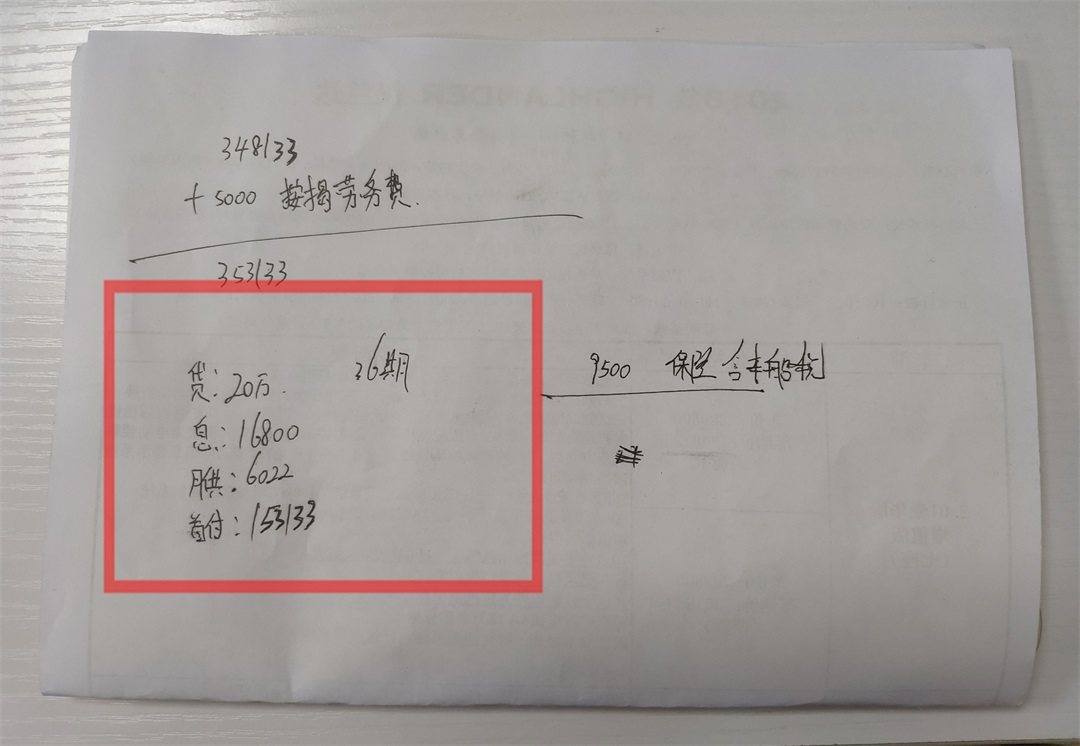 348133
+5000 按揭劳务费.
353133
36期
贷:20万.
息:16800
月供:6022
首付:153133
9500 保险含车船税